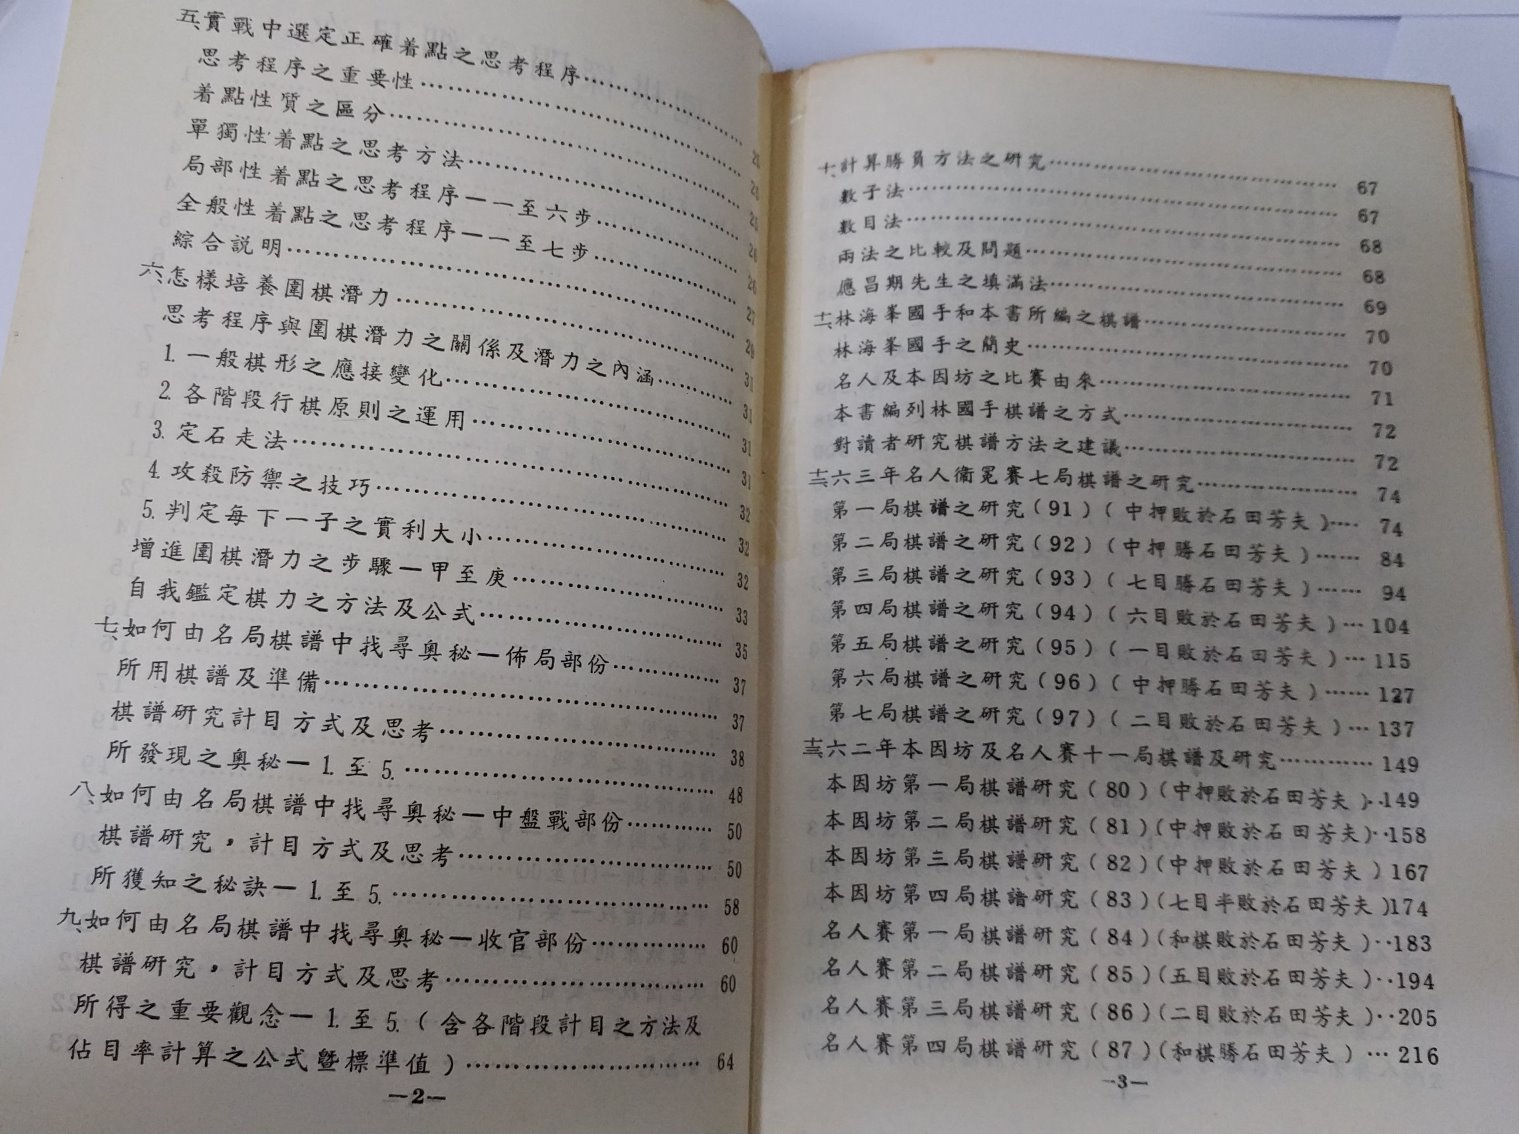 五、實戰中選定正確着點之思考程序……
思考程序之重要性……
着點性質之區分……
單獨性着點之思考方法……26
局部性着點之思考程序——一至六步……26
全般性着點之思考程序——一至七步……27
綜合説明……29
六、怎樣培養圍棋潛力……31
思考程序與圍棋潛力之關係及潛力之內涵……31
1. 一般棋形之應接變化……31
2. 各階段行棋原則之運用……31
3. 定石走法……32
4. 攻殺防禦之技巧……32
5. 判定每下一子之實利大小……32
增進圍棋潛力之步驟—甲至庚……33
自我鑑定棋力之方法及公式……35
七、如何由名局棋譜中找尋奧秘—佈局部份……37
所用棋譜及準備……37
棋譜研究計目方式及思考……38
所發現之奧秘—1. 至 5.……48
八、如何由名局棋譜中找尋奧秘—中盤戰部份……50
棋譜研究，計目方式及思考……50
所獲知之秘訣—1. 至 5.……58
九、如何由名局棋譜中找尋奧秘—收官部份……60
棋譜研究，計目方式及思考……60
所得之重要觀念—1. 至 5.（含各階段計目之方法及
佔目率計算之公式暨標準值）……64
—2—
十、計算勝負方法之研究……67
數子法……67
數目法……68
兩法之比較及問題……68
應昌期先生之填滿法……69
十一、林海峯國手和本書所編之棋譜……70
林海峯國手之簡史……70
名人及本因坊之比賽由來……71
本書編列林國手棋譜之方式……72
對讀者研究棋譜方法之建議……72
十二、六三年名人衞冕賽七局棋譜之研究……74
第一局棋譜之研究（91）（中押敗於石田芳夫）…74
第二局棋譜之研究（92）（中押勝石田芳夫）……84
第三局棋譜之研究（93）（七目勝石田芳夫）……94
第四局棋譜之研究（94）（六目敗於石田芳夫）…104
第五局棋譜之研究（95）（一目敗於石田芳夫）…115
第六局棋譜之研究（96）（中押勝石田芳夫）……127
第七局棋譜之研究（97）（二目敗於石田芳夫）…137
十三、六二年本因坊及名人賽十一局棋譜及研究…………149
本因坊第一局棋譜研究（80）（中押敗於石田芳夫）‥149
本因坊第二局棋譜研究（81）（中押敗於石田芳夫）‥158
本因坊第三局棋譜研究（82）（中押敗於石田芳夫）167
本因坊第四局棋譜研究（83）（七目半敗於石田芳夫）174
名人賽第一局棋譜研究（84）（和棋敗於石田芳夫）‥183
名人賽第二局棋譜研究（85）（五目敗於石田芳夫）‥194
名人賽第三局棋譜研究（86）（二目敗於石田芳夫）‥205
名人賽第四局棋譜研究（87）（和棋勝石田芳夫）…216
—3—